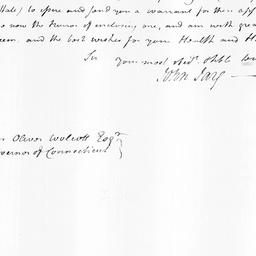 State) to issue and send you a warrant for their app
now the Honor of inclosing one, and am with grea
eem, and the best wishes for your Health and H
Sir your most obed.t & hble
John Jay
Oliver Wolcott Esq.r
vernor of Connecticut